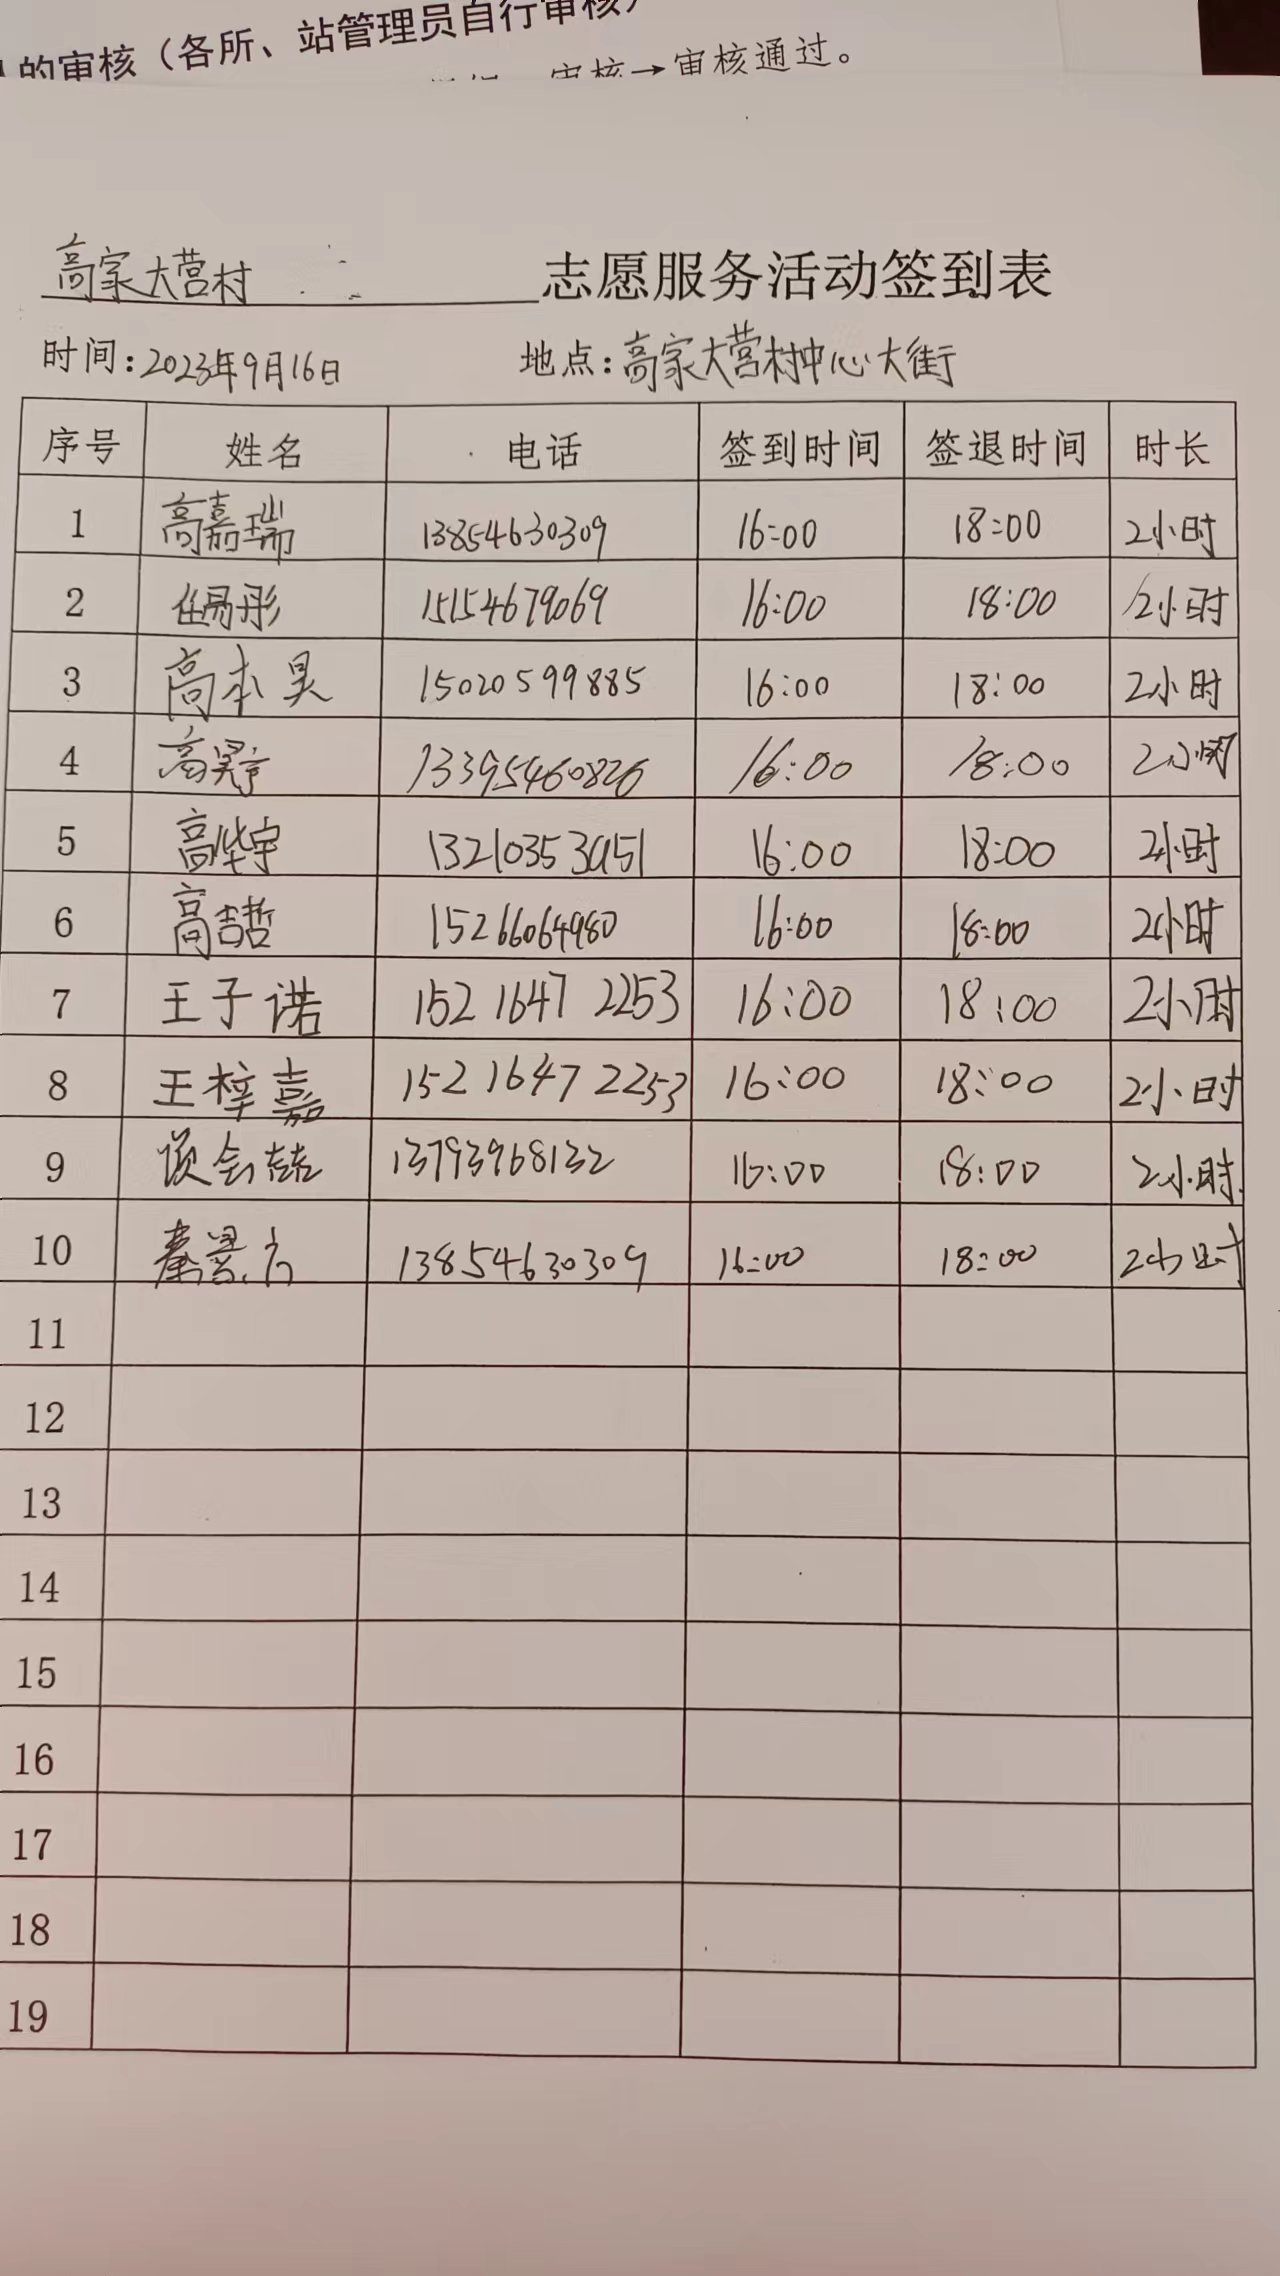 的审核（各所、站管理员自行审核）
审核→审核通过。
高家大营村 志愿服务活动签到表
时间:2023年9月16日 地点:高家大营村中心大街
序号 姓名 电话 签到时间 签退时间 时长
1 高嘉瑞 13854630309 16:00 18:00 2小时
2 任易彤 15154679069 16:00 18:00 2小时
3 高本昊 15020599885 16:00 18:00 2小时
4 高昊宇 13395460826 16:00 18:00 2小时
5 高梓宇 13210353951 16:00 18:00 2小时
6 高吉哲 15266064980 16:00 18:00 2小时
7 王子诺 152 1647 2253 16:00 18:00 2小时
8 王梓嘉 152 1647 2253 16:00 18:00 2小时
9 13793968132 16:00 18:00 2小时
10 秦景 13854630309 16:00 18:00 2小时
11
12
13
14
15
16
17
18
19